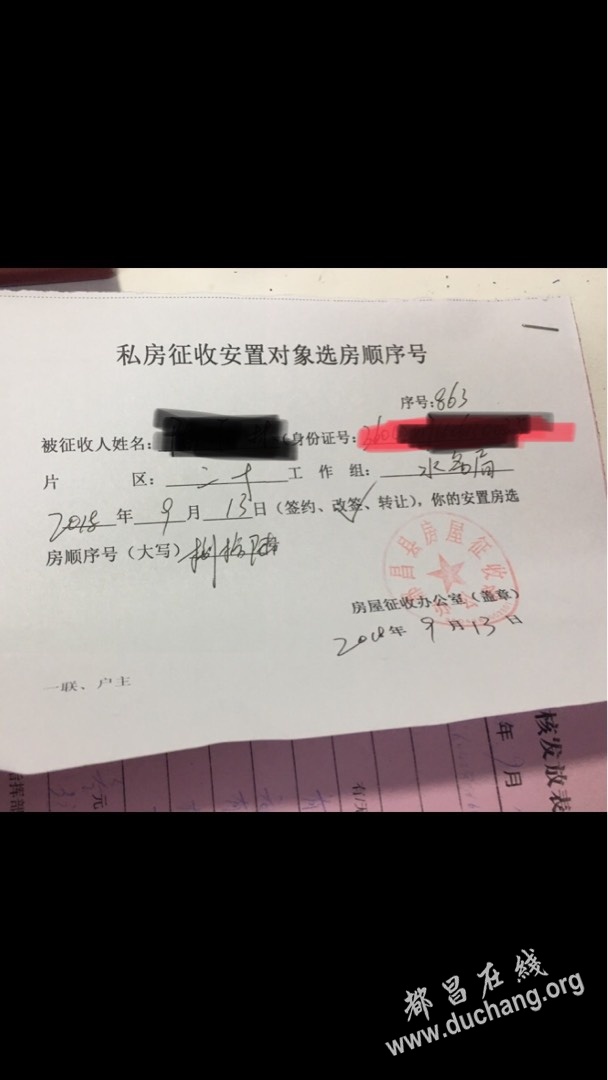 私房征收安置对象选房顺序号
序号:863
被征收人姓名: (身份证号:360
片区: 工作组: 水务局
2018年9月13日(签约、改签、转让),你的安置房选
房顺序号(大写)捌拾陆
昌县房屋征收办公室
房屋征收办公室(盖章)
2018年9月13日
一联、户主
核发放表
年 月
元
指挥部
都昌在线
www.duchang.org